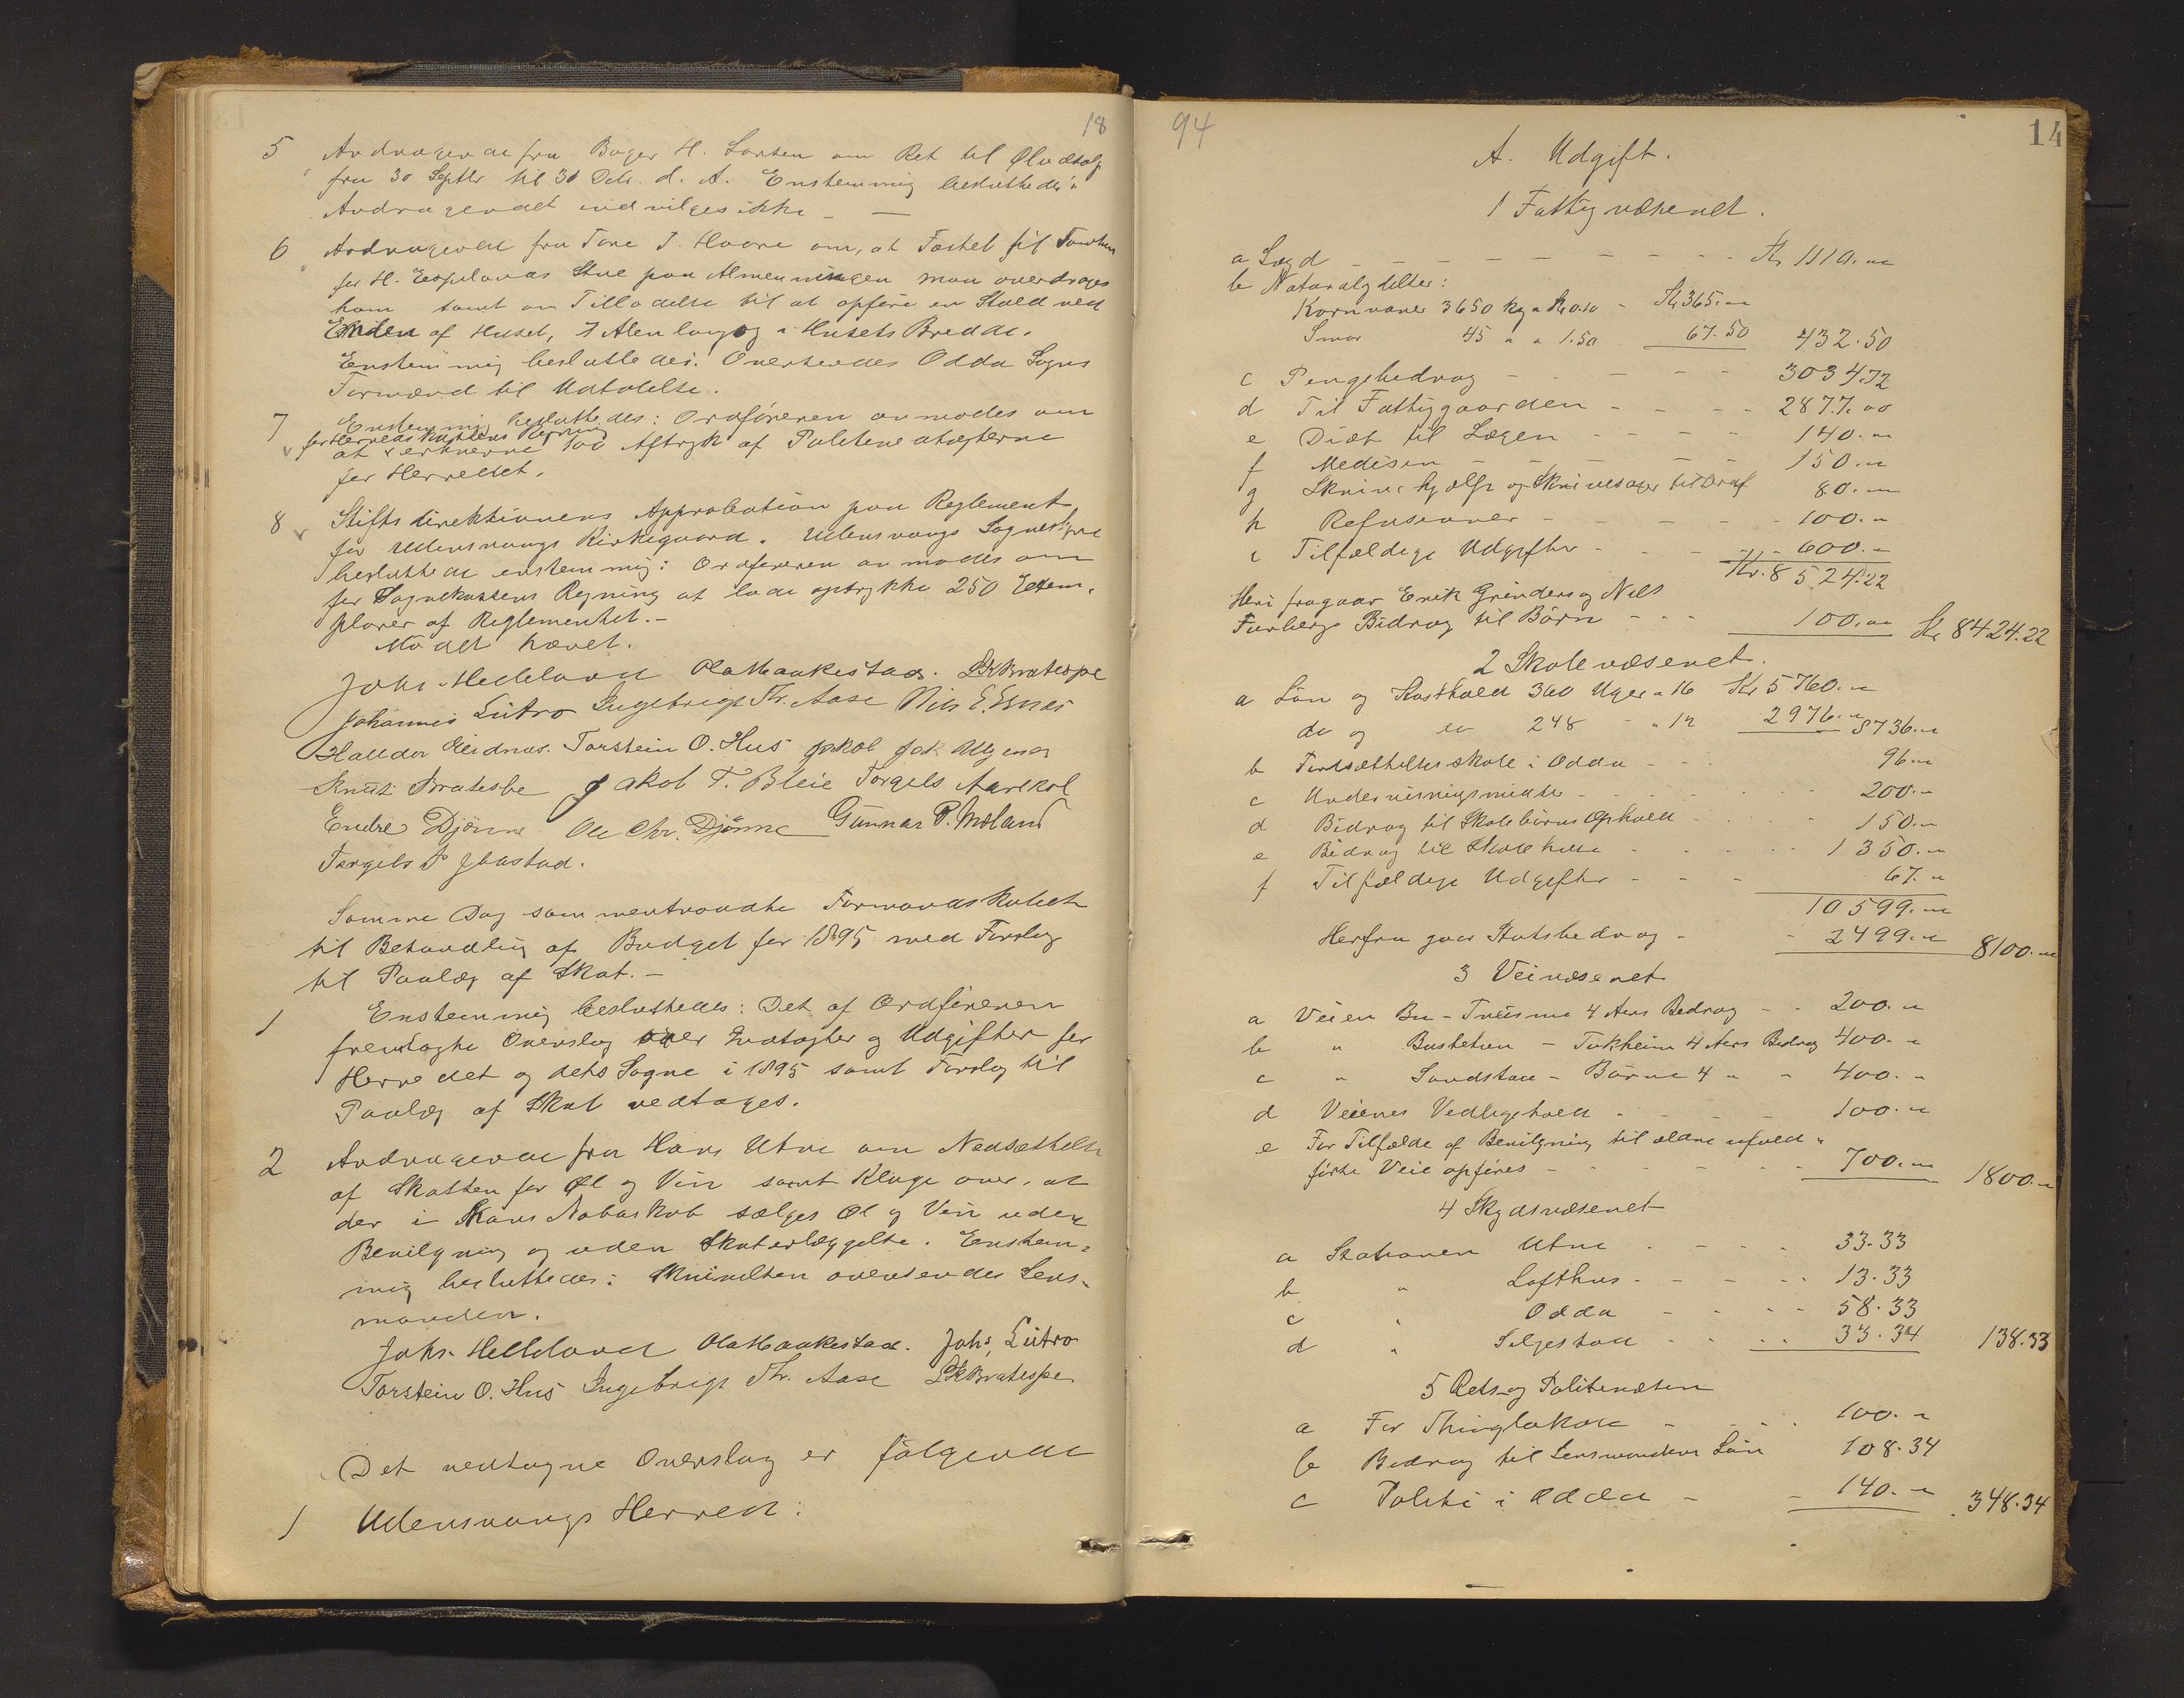 18
5 Andragende fra Bager H. Larsen om Ret til Øludsalg
fra 30 Septbr til 31 Decbr. d. A. Enstemmig besluttedes:
Andragendet indvilges ikke —
6 Andragende fra Tore T. Haare om, at Fæstet til Tomten
for H. Espelands Stue paa Almenningen maa overdrages
ham samt om Tilladelse til at opføre en Stald ved
Enden af Huset, 7 Alen lang og i Husets Bredde.
Enstemmig besluttedes: Oversendes Odda Sogns
Formænd til Udtalelse.
7 Enstemmig besluttedes: Ordføreren anmodes om
for Herredskassens Regning
at erhverve 100 Aftryk af Politivedtægterne
for Herredet.
8 Stiftsdirektionens Approbation paa Reglement
for Udensvangs Kirkegaard. Udensvangs Sognestyre
besluttede enstemmig: Ordføreren anmodes om
for Sognekassens Regning at lade optrykke 250 Exem-
plarer af Reglementet. -
Mødet hævet.
Johs. Helleland Ola Maakestad. L K Bratespe
Johannes Lutro Ingebrigt Th. Aase Nils E. Esnes
Halldor Eidnæs. Torstein O. Hus Jakob
Knut Bratespe Jakob T. Bleie Torgels Aarekol
Endre Djønne Ole Chr. Djønne Gunnar P. Moland
Torgels P Jaastad.
Samme Dag sammentraadte Formandskabet
til Behandling af Budget for 1895 med Forslag
til Paalæg af Skat. -
1 Enstemmig besluttedes: Det af Ordføreren
fremlagte Overslag over Indtægter og Udgifter for
Herredet og dets Sogne i 1895 samt Forslag til
Paalæg af Skat vedtages.
2 Andragende fra Hans Utne om Nedsættelse
af Skatten for Øl og Vin samt Klage over, at
der i Hans Naboskab sælges Øl og Vin uden
Bevilgning og uden Skaterlæggelse. Enstem-
mig besluttedes: Skrivelsen oversendes Lens-
manden.
Johs. Helleland Ola Maakestad. Johs. Lutro
Torstein O. Hus Ingebrigt Th. Aase L K Bratespe
Det vedtagne Overslag er følgende
1 Udensvangs Herred:
94
14
A. Udgift.
1 Fattigvæsenet.
a Lægd - - - - - - Kr 1110.00
b Naturalydelser:
Kornvarer 3650 kg a kr 0.10 - Kr 365.00
Smør 45 " a 1.50 67.50 432.50
c Pengebidrag - - - - - 3034.72
d Til Fattiggaarden - - - - 2877.00
e Diæt til Lægen - - - - 140.00
f Medisin - - - - - 150.00
g Skrivehjælp og Skrivesager til Ordf 80.00
h Refusioner - - - - - 100.00
i Tilfældige Udgifter - - - - 600.00
Kr. 8524.22
Heri fragaar Erik Grønders og Nils
Furbergs Bidrag til Børn - - - 100.00 Kr 8424.22
2 Skolevæsenet.
a Løn og Kosthold 360 Uger a 16 Kr 5760.00
do og do 248 - a 12 2976.00 8736.00
b Fortsættelsesskole i Odda - - 96.00
c Undervisningsmidler - - - - 200.00
d Bidrag til Skolebørns Ophold - - - 150.00
e Bidrag til Skolehuse - - - - 1350.00
f Tilfældige Udgifter - - - 67.00
10599.00
Herfra gaar Statsbidrag - - 2499.00 8100.00
3 Veivæsenet
a Veien Bu - Tveisme 4 Aars Bidrag - - 200.00
b " Bustetun - Tokheim 4 Aars Bidrag 400.00
c " Sandstøe - Børve 4 " " 400.00
d Veienes Vedligehold - - - - 100.00
e For Tilfælde af Bevilgning til ældre ufuld-
førte Veie opføres - - - - - 700.00 1800.00
4 Skydsvæsenet
a Stationen Utne - - - - 33.33
b " Lofthus - - - - 13.33
c " Odda - - - - 58.33
d " Seljestad - - - - 33.34 138.33
5 Rets- og Politivæsen
a For Thinglokale - - - - 100.00
b Bidrag til Lensmandens Løn 108.34
c Politi i Odda - - 140.00 348.34